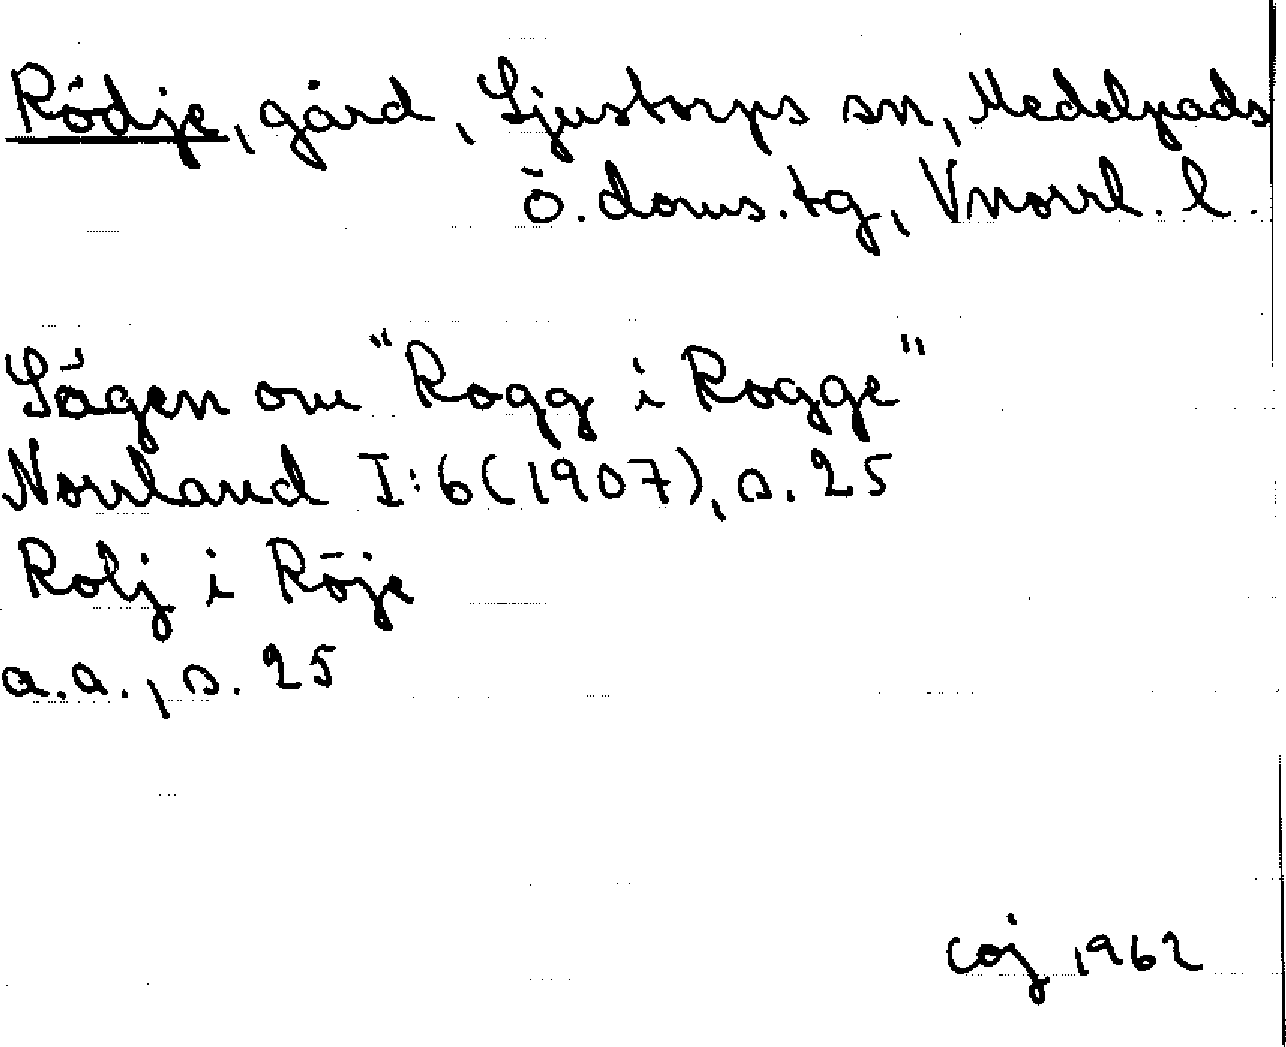 Rödje, gård, Ljustorps sn, Medelpads
ö. doms. tg, Vnorrl. l.
Sägen om "Rogg i Rogge"
Norrland I:6 (1907), s. 25
Rolj i Röje
a.a., s. 25
coj 1962